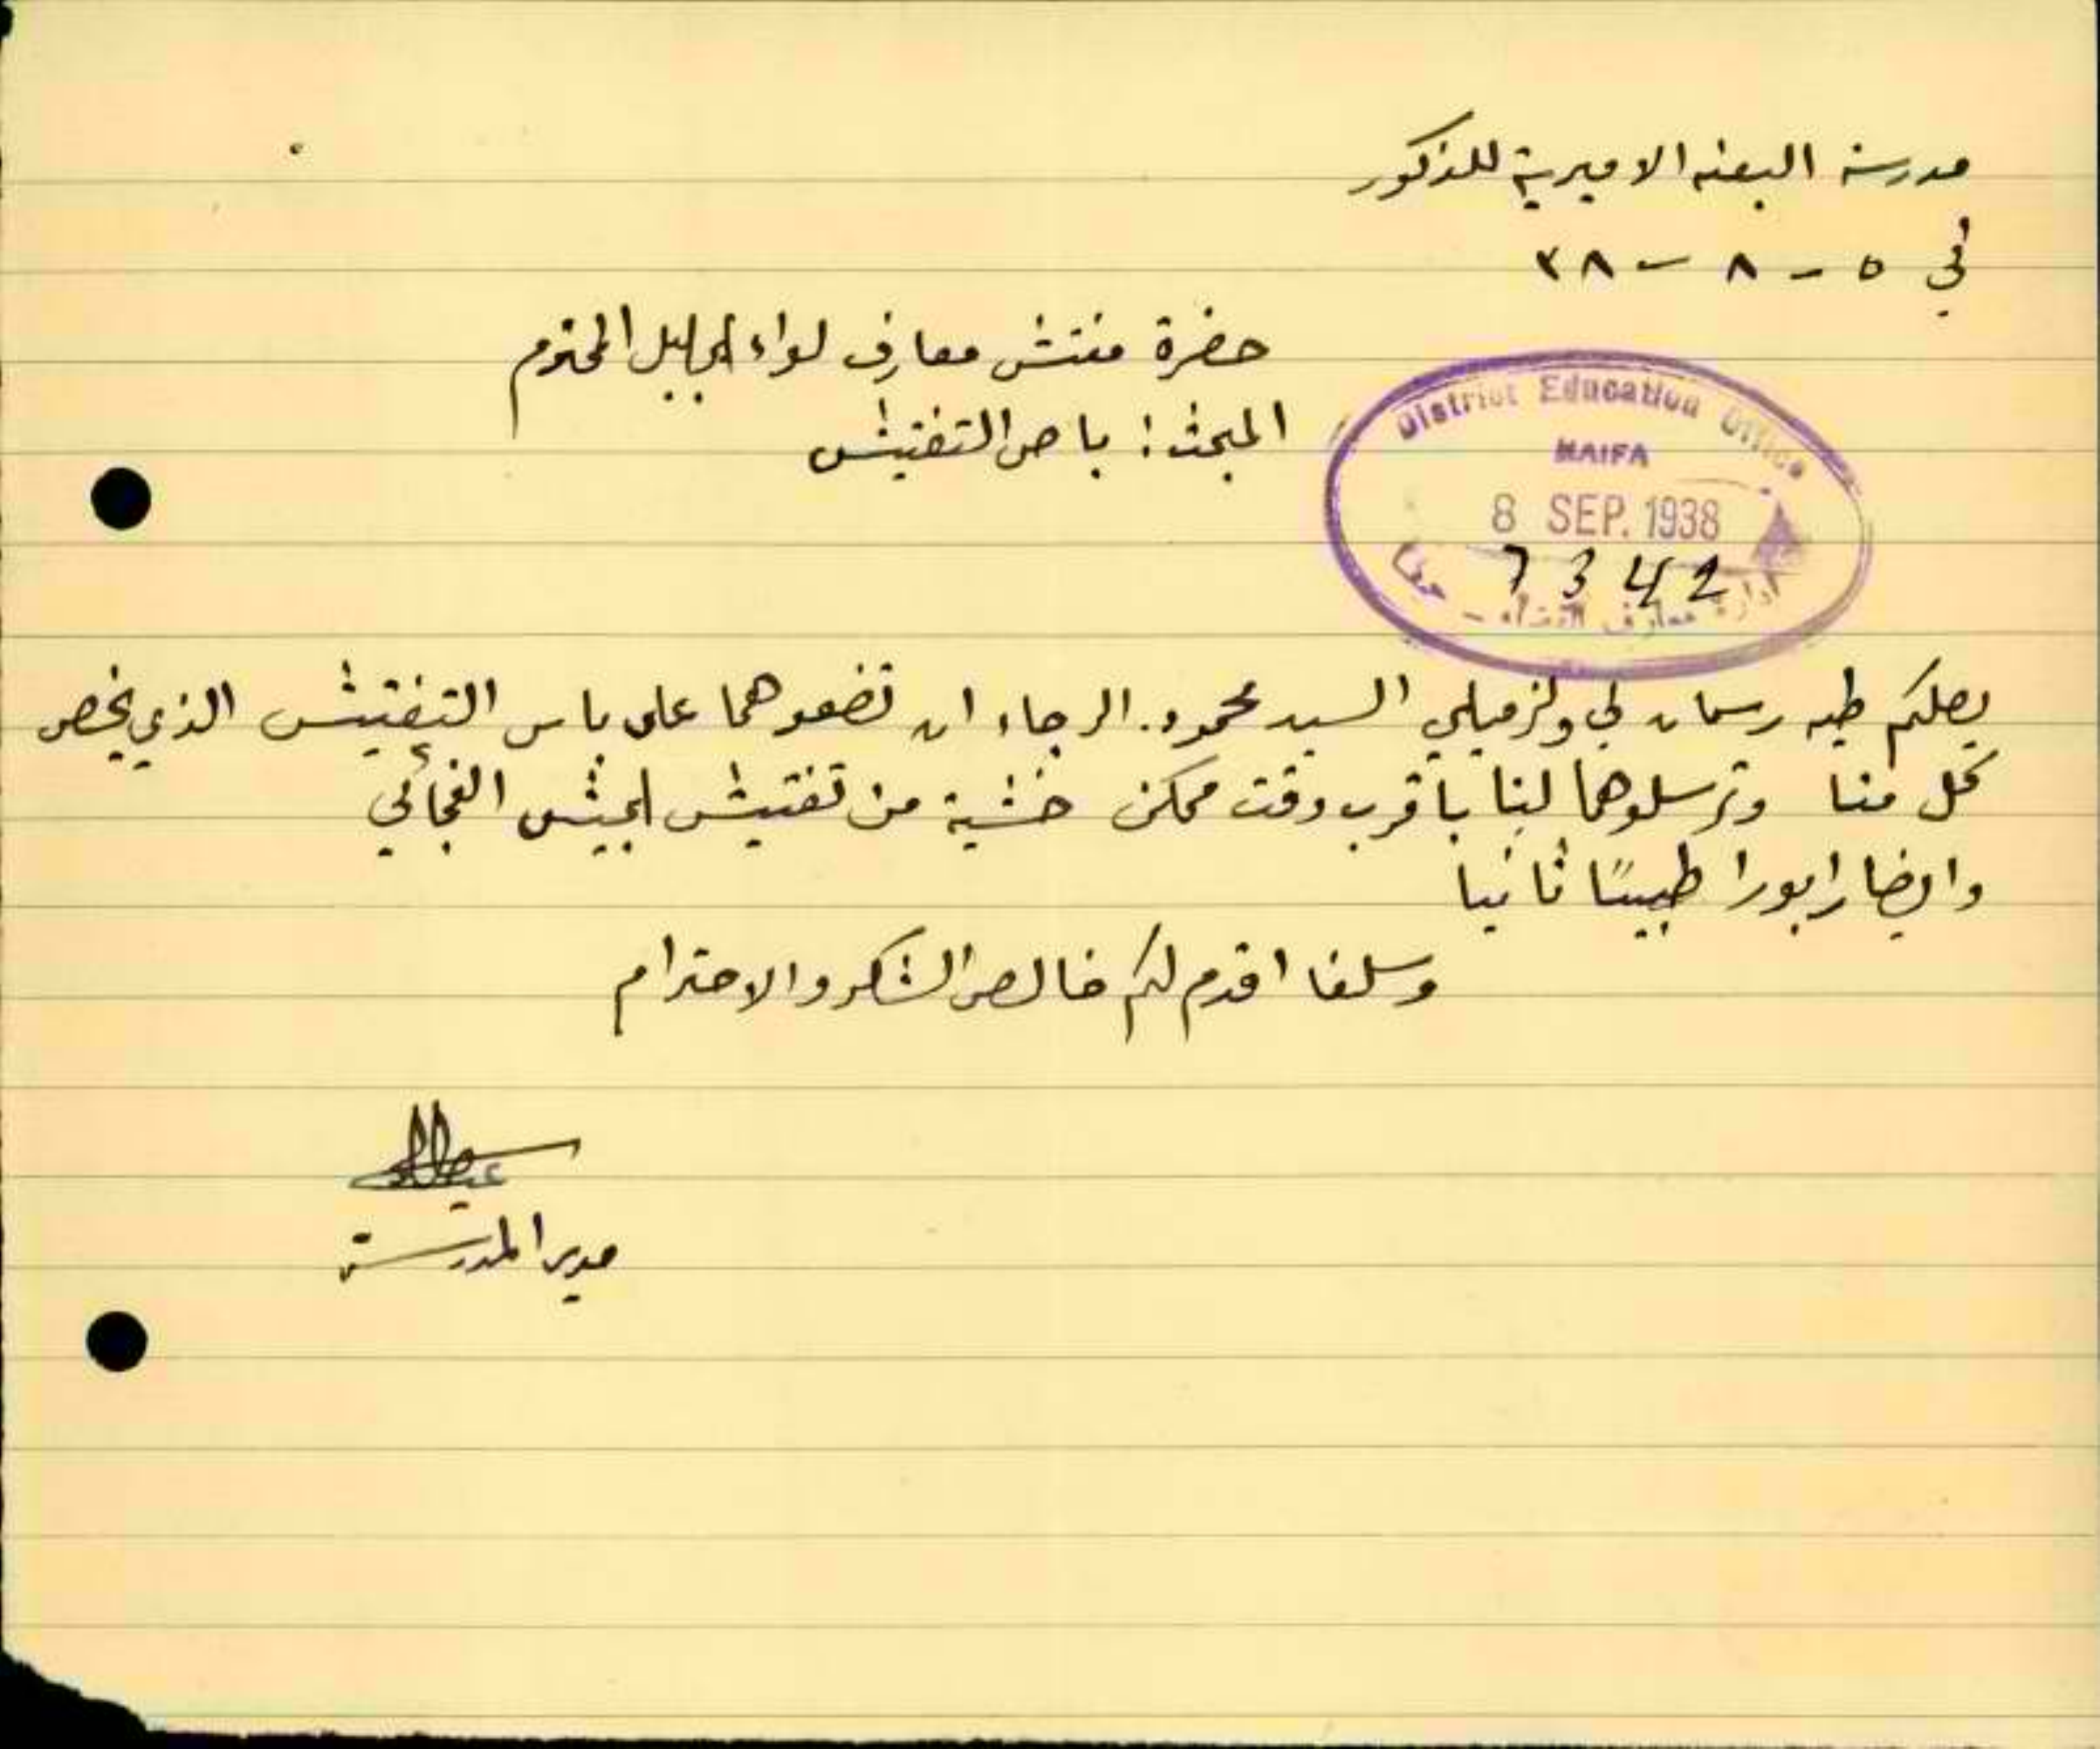 مدرسة البعنه الاميرية للذكور
في ٥ - ٨ - ٣٨
حضرة مفتش معارف لواء الجليل المحترم
المبحث: باص التفتيش
District Education Office
HAIFA
8 SEP. 1938
7342
ادارة معارف اللواء - حيفا
يصلكم طيه رسمان لي ولزميلي السيد محمود. الرجاء ان تضعوهما على باس التفتيش الذي يخص
كل منا وترسلوهما لنا باقرب وقت ممكن خشية من تفتيش الجيش الفجائي
وايضا رابورا طبيًا ثانيا
وسلفا اقدم لكم خالص الشكر والاحترام
مدير المدرسة